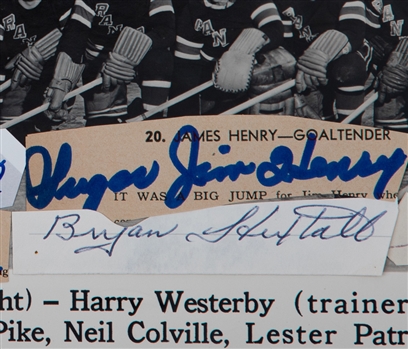 RAN
20. JAMES HENRY—GOALTENDER
Sugar Jim Henry
IT WAS A BIG JUMP for Jim Henry who
Bryan Hextall
ght) – Harry Westerby (trainer
Pike, Neil Colville, Lester Patr